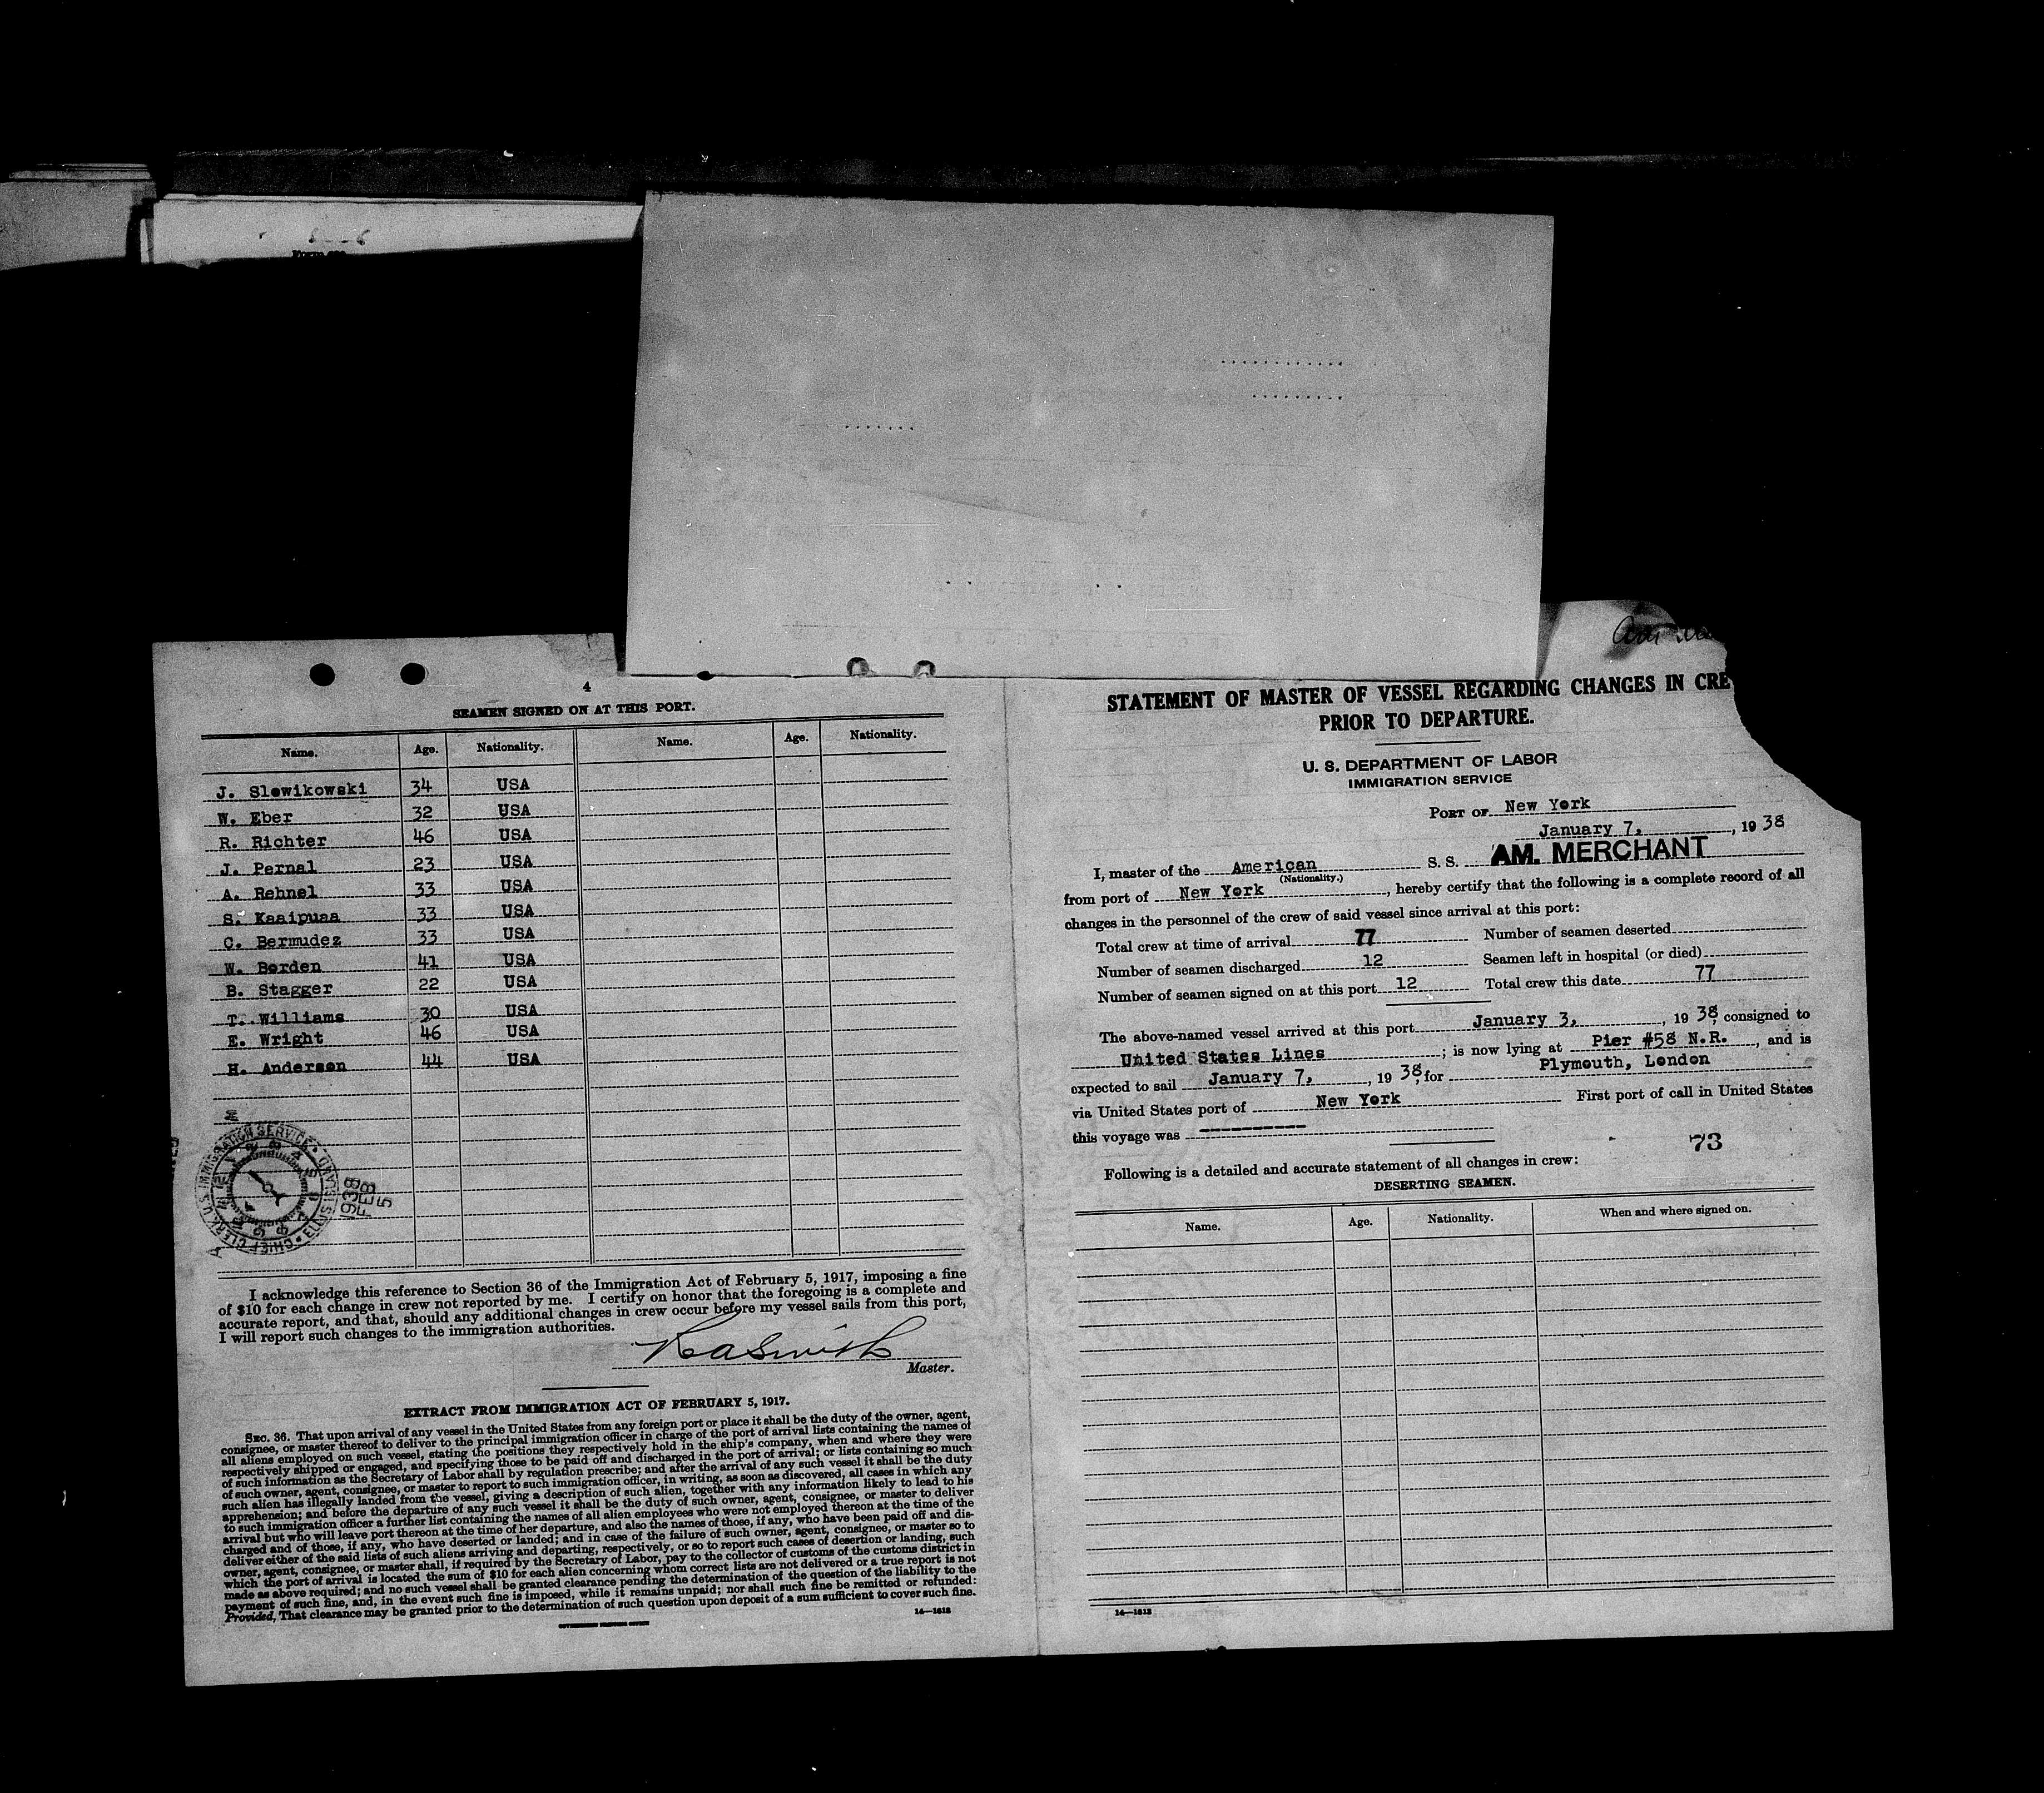 4
SEAMEN SIGNED ON AT THIS PORT.
Name. Age. Nationality. Name. Age. Nationality.
J. Slowikowski 34 USA
W. Eber 32 USA
R. Richter 46 USA
J. Pernal 23 USA
A. Rehnel 33 USA
S. Kaaipuaa 33 USA
C. Bermudez 33 USA
W. Borden 41 USA
B. Stagger 22 USA
T. Williams 30 USA
E. Wright 46 USA
H. Anderson 44 USA
CHIEF CLERK U.S. IMMIGRATION SERVICE ELLIS ISLAND
1938
FEB
5
I acknowledge this reference to Section 36 of the Immigration Act of February 5, 1917, imposing a fine
of $10 for each change in crew not reported by me. I certify on honor that the foregoing is a complete and
accurate report, and that, should any additional changes in crew occur before my vessel sails from this port,
I will report such changes to the immigration authorities.
Master.
EXTRACT FROM IMMIGRATION ACT OF FEBRUARY 5, 1917.
SEC. 36. That upon arrival of any vessel in the United States from any foreign port or place it shall be the duty of the owner, agent,
consignee, or master thereof to deliver to the principal immigration officer in charge of the port of arrival lists containing the names of
all aliens employed on such vessel, stating the positions they respectively hold in the ship's company, when and where they were
respectively shipped or engaged, and specifying those to be paid off and discharged in the port of arrival; or lists containing so much
of such information as the Secretary of Labor shall by regulation prescribe; and after the arrival of any such vessel it shall be the duty
of such owner, agent, consignee, or master to report to such immigration officer, in writing, as soon as discovered, all cases in which any
such alien has illegally landed from the vessel, giving a description of such alien, together with any information likely to lead to his
apprehension; and before the departure of any such vessel it shall be the duty of such owner, agent, consignee, or master to deliver
to such immigration officer a further list containing the names of all alien employees who were not employed thereon at the time of the
arrival but who will leave port thereon at the time of her departure, and also the names of those, if any, who have been paid off and dis-
charged and of those, if any, who have deserted or landed; and in case of the failure of such owner, agent, consignee, or master so to
deliver either of the said lists of such aliens arriving and departing, respectively, or so to report such cases of desertion or landing, such
owner, agent, consignee, or master shall, if required by the Secretary of Labor, pay to the collector of customs of the customs district in
which the port of arrival is located the sum of $10 for each alien concerning whom correct lists are not delivered or a true report is not
made as above required; and no such vessel shall be granted clearance pending the determination of the question of the liability to the
payment of such fine, and, in the event such fine is imposed, while it remains unpaid; nor shall such fine be remitted or refunded:
Provided, That clearance may be granted prior to the determination of such question upon deposit of a sum sufficient to cover such fine.
GOVERNMENT PRINTING OFFICE 14—1618
STATEMENT OF MASTER OF VESSEL REGARDING CHANGES IN CRE
PRIOR TO DEPARTURE.
U. S. DEPARTMENT OF LABOR
IMMIGRATION SERVICE
PORT OF New York
January 7, , 19 38
I, master of the American S. S. AM. MERCHANT
(Nationality.)
from port of New York , hereby certify that the following is a complete record of all
changes in the personnel of the crew of said vessel since arrival at this port:
Total crew at time of arrival 77 Number of seamen deserted
Number of seamen discharged 12 Seamen left in hospital (or died)
Number of seamen signed on at this port 12 Total crew this date 77
The above-named vessel arrived at this port January 3, , 19 38, consigned to
United States Lines ; is now lying at Pier #58 N.R. , and is
expected to sail January 7, , 19 38, for Plymouth, London
via United States port of New York First port of call in United States
this voyage was ----------
73
Following is a detailed and accurate statement of all changes in crew:
DESERTING SEAMEN.
Name. Age. Nationality. When and where signed on.
14—1618